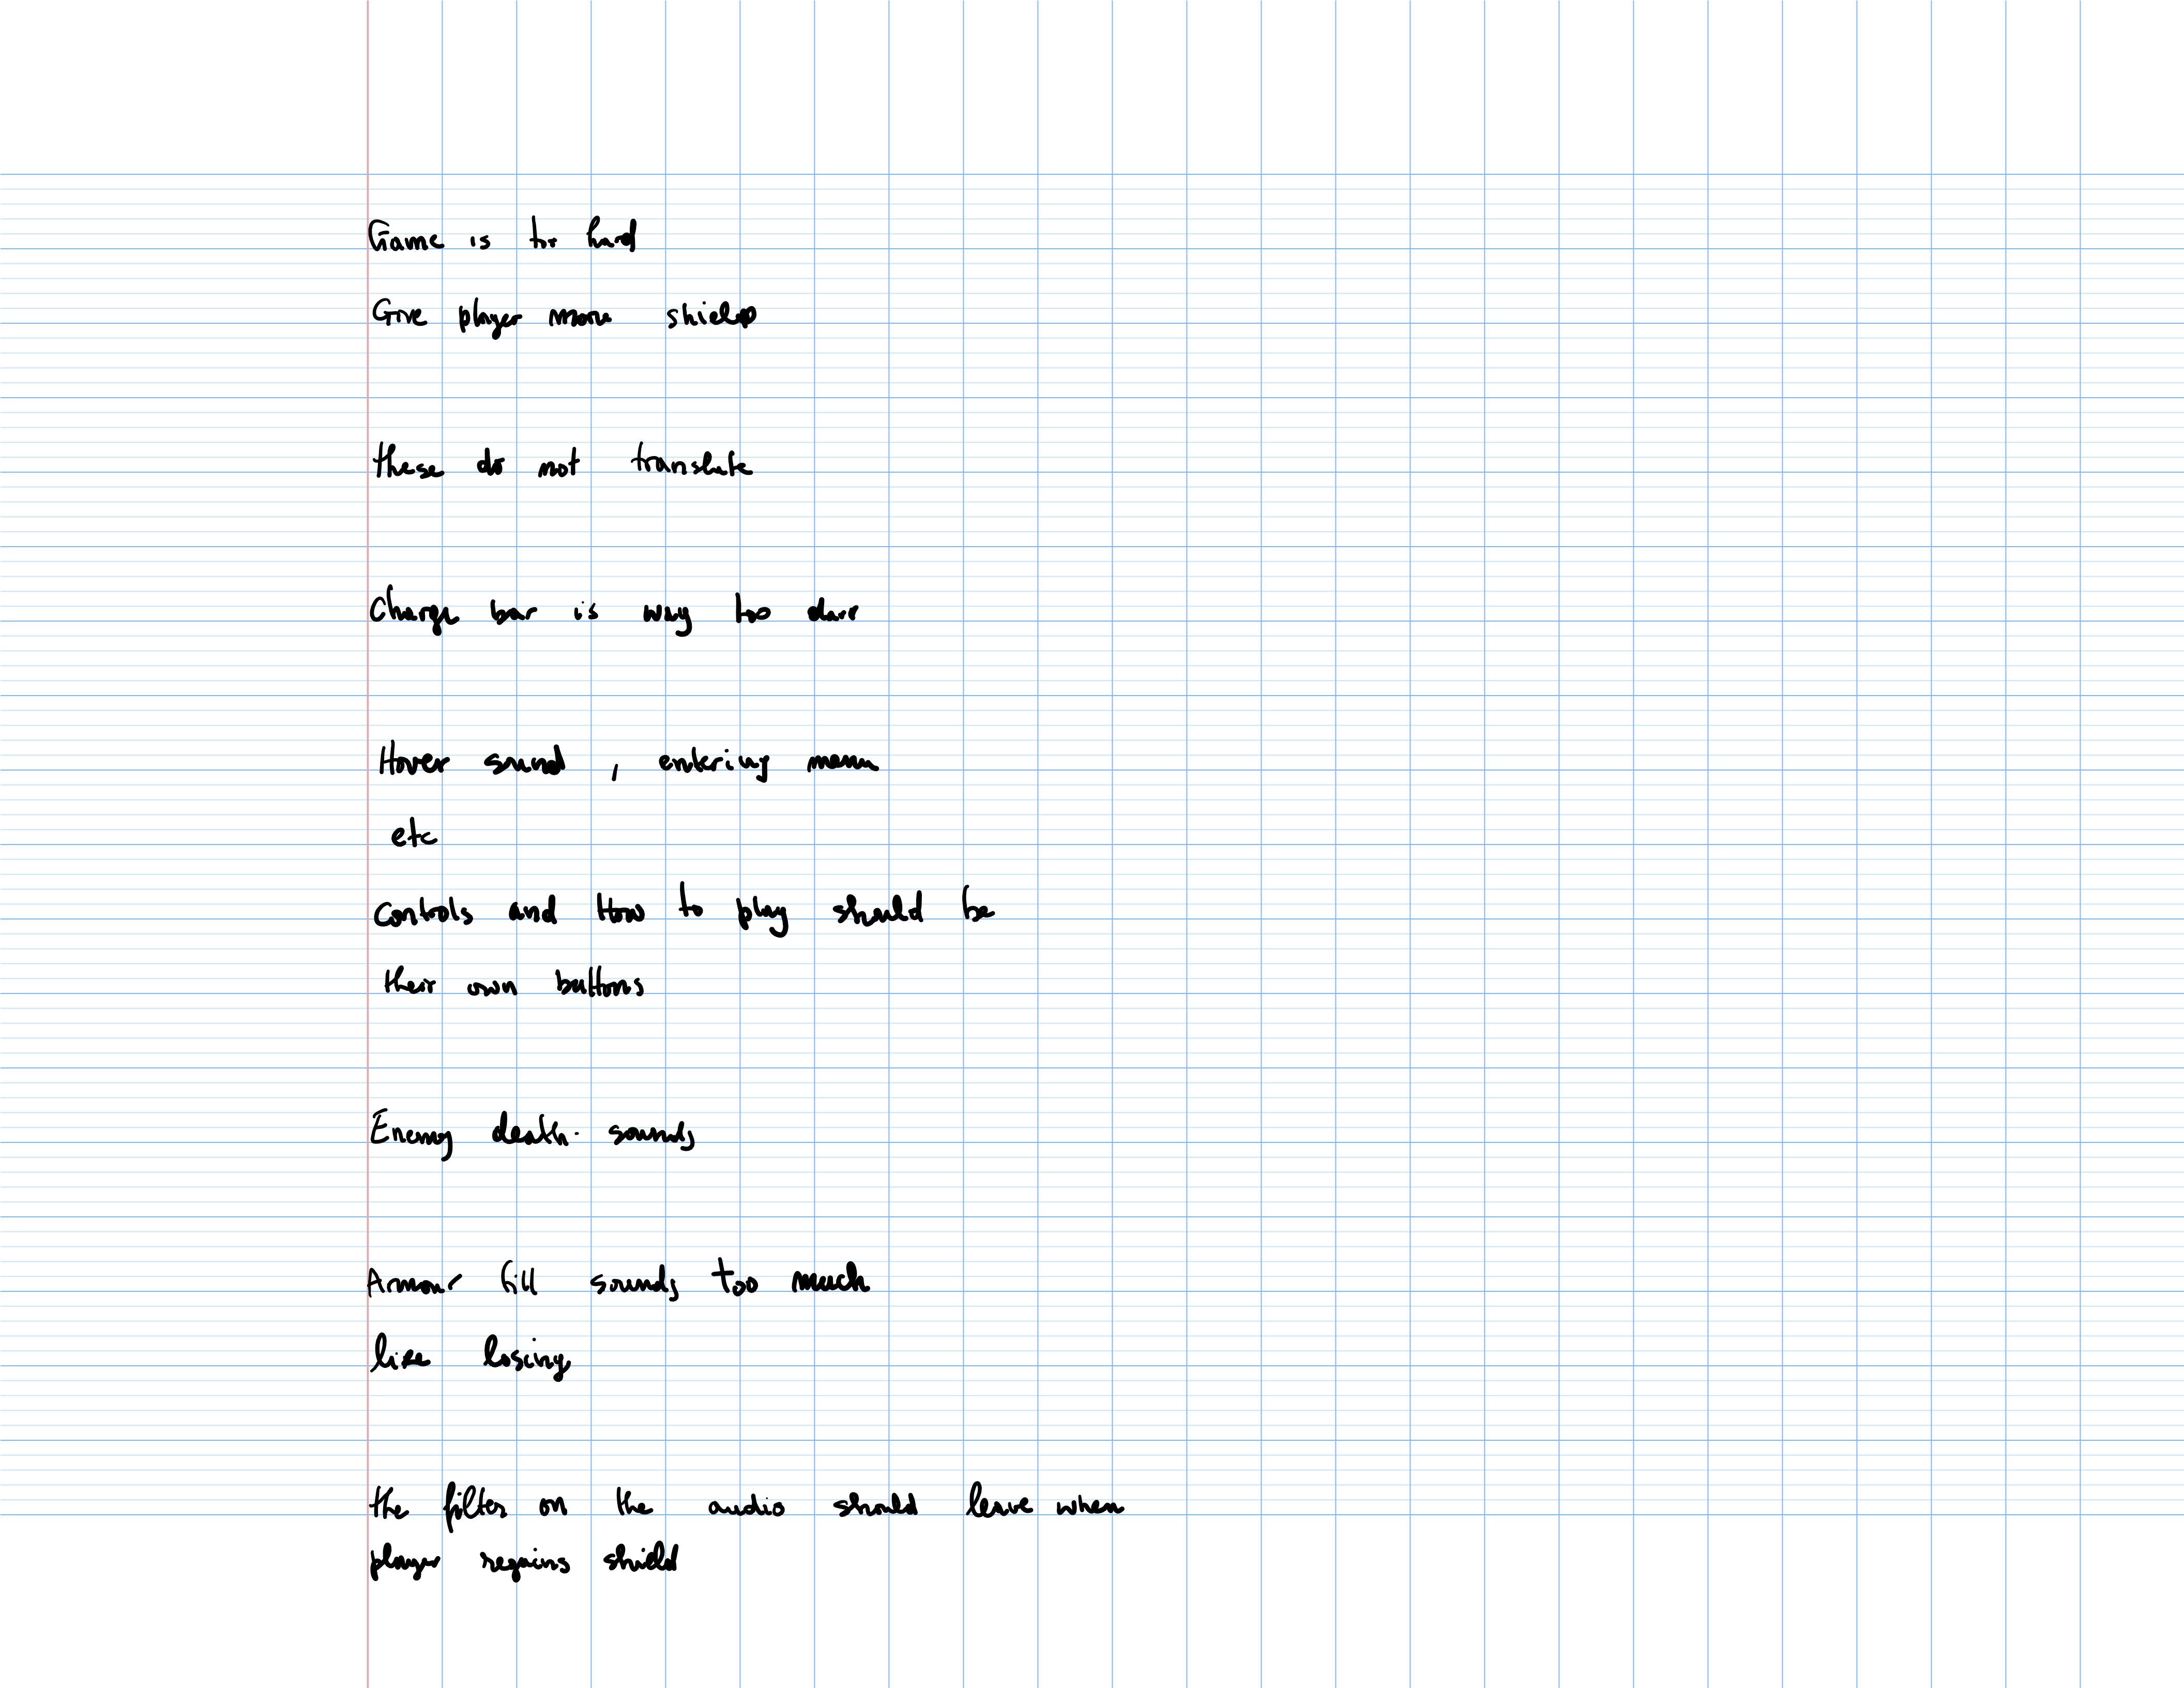 Game is to hard
Give player more shield
these do not translate
Charge bar is way too dark
Hover sound , entering menu
etc
controls and How to play should be
their own buttons
Enemy death sounds
Armour fill sounds too much
like losing
the filter on the audio should leave when
player regains shield